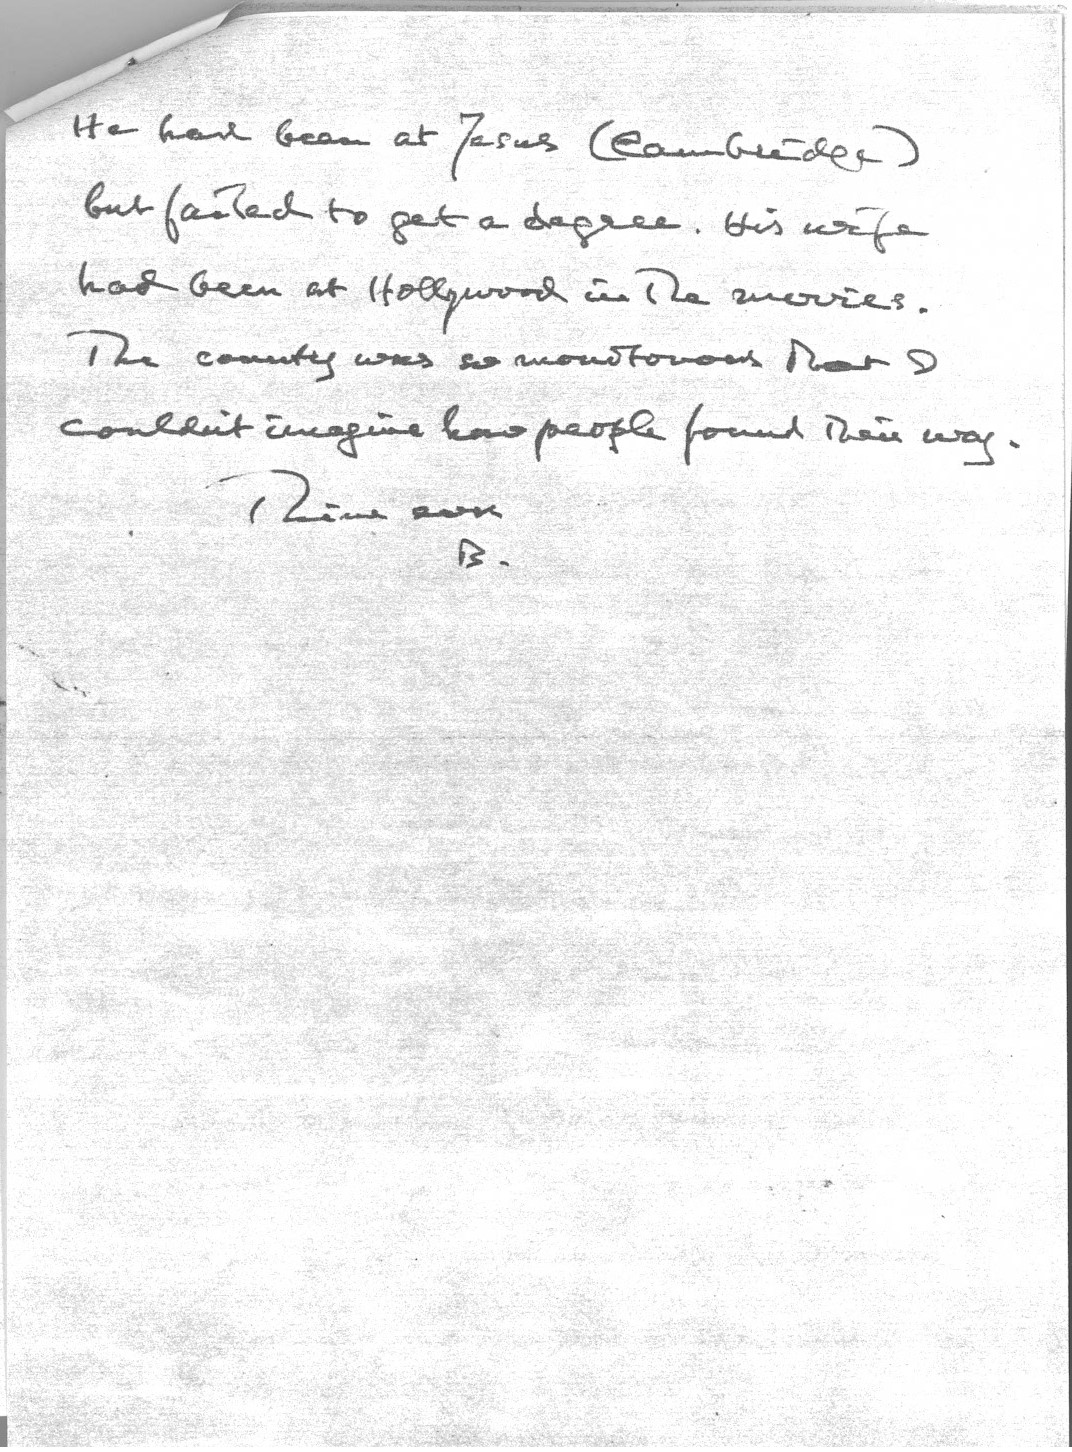 He had been at Jesus (Cambridge)
but failed to get a degree. His wife
had been at Hollywood in the movies.
The country was so monotonous that I
couldn't imagine how people found their way.
Thine
B.